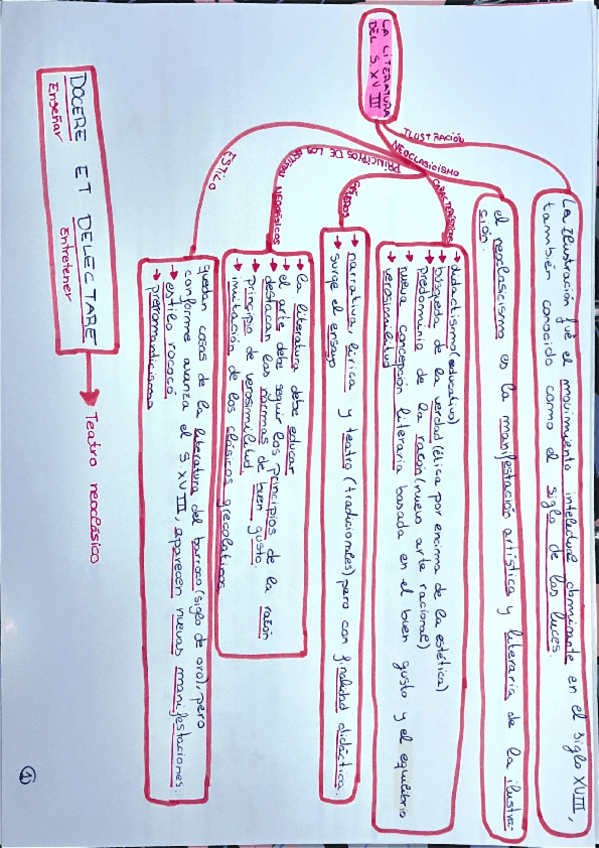 LA LITERATURA
DEL S.XVIII
ILUSTRACIÓN
La Ilustración fué el movimiento intelectual dominante en el siglo XVIII,
también conocido como el siglo de las luces.
NEOCLASICISMO
el neoclasicismo es la manifestación artística y literaria de la ilustra-
sión.
CARACTERÍSTICAS
→ didactismo (educativo)
→ búsqueda de la verdad (ética por encima de la estética)
→ predominio de la razón (nuevo arte racional)
→ nueva concepción literaria basada en el buen gusto y el equilibrio
→ verosimilitud
→ narrativa, lírica y teatro (tradicionales) pero con finalidad didáctica.
→ surge el ensayo
PRINCIPIOS DE LOS
NEOCLÁSICOS
→ la literatura debe educar
→ el arte debe seguir los principios de la razón
→ destacan las normas de buen gusto.
→ principio de verosimilitud
→ imitación de los clásicos grecolatinos
ESTILO
quedan cosas de la literatura del barroco (siglo de oro), pero
conforme avanza el S.XVIII, aparecen nuevas manifestaciones.
→ estilo rococó
→ prerromanticismo
DOCERE ET DELECTARE → Teatro neoclásico
Enseñar Entretener
1